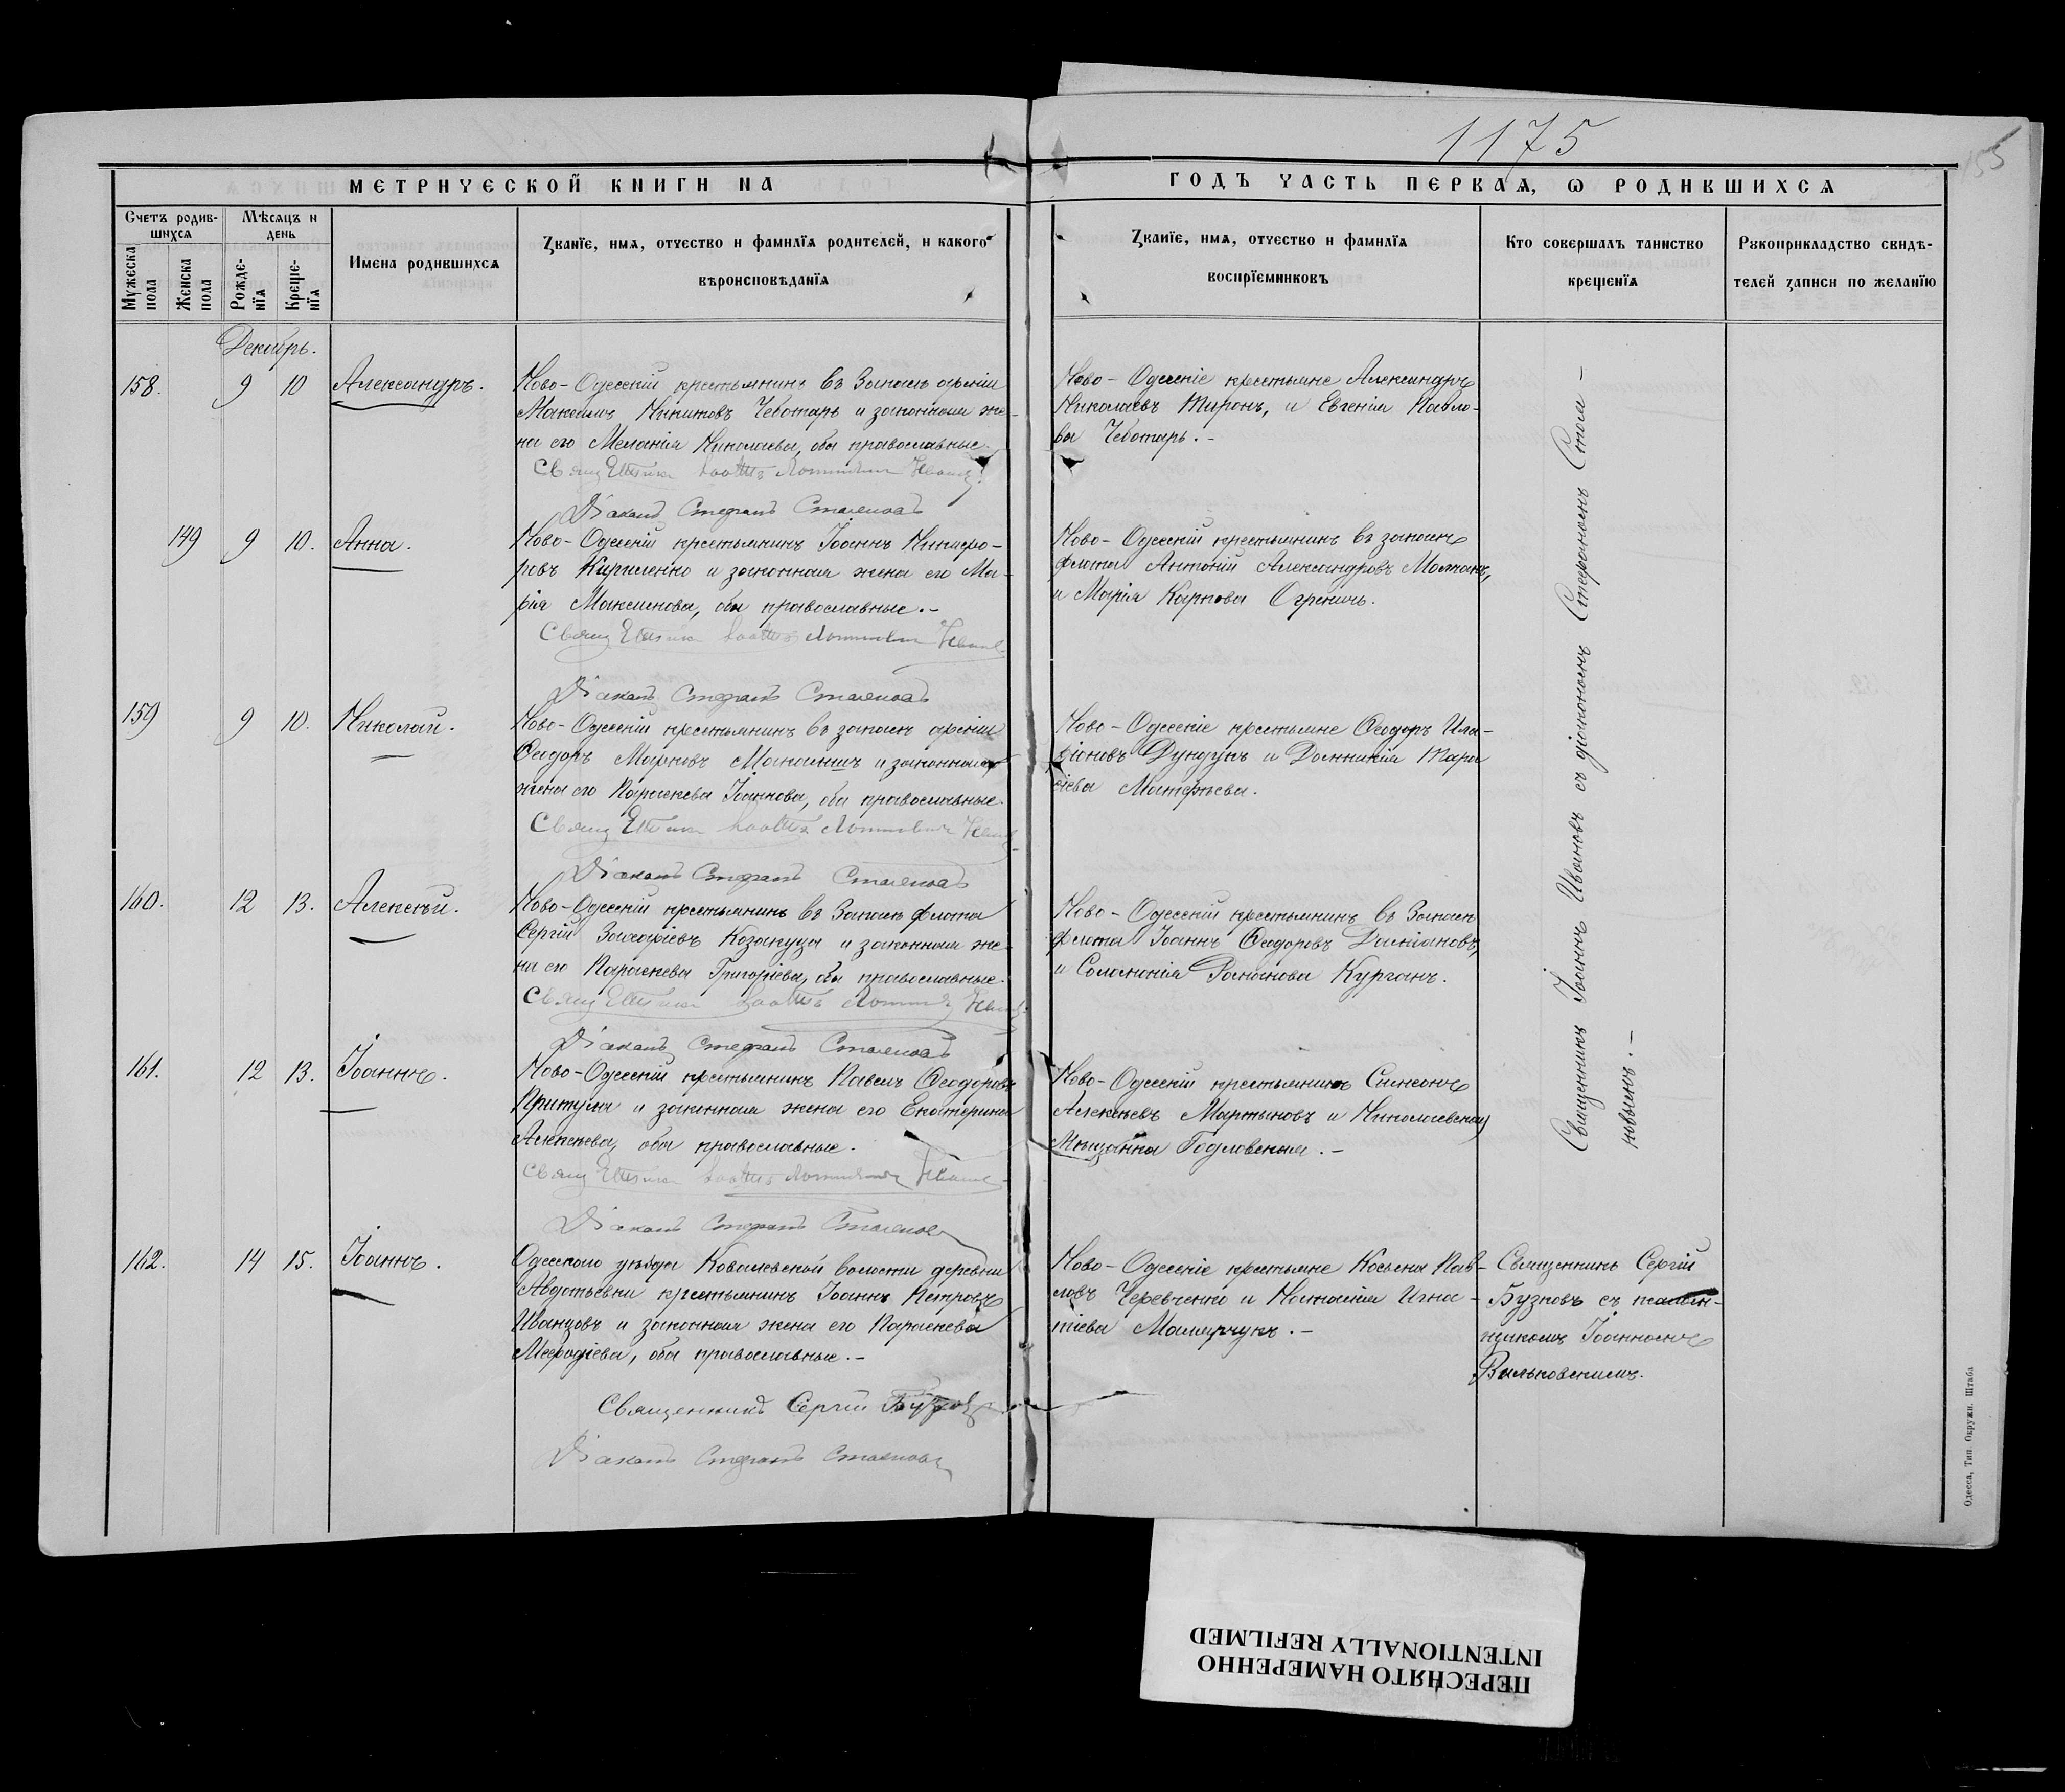 1175
155
МЕТРИЧЕСКОЙ КНИГИ NА
ГОДЪ ЧАСТЬ ПЕРВАЯ, Ѡ РОДИВШИХСЯ
Счетъ родив-
шихся
Мѣсяцъ и
день
Мужеска
пола
Женска
пола
Рожде-
нїя
Креще-
нїя
Имена родившихся
Званїе, имя, отчество и фамилїя родителей, и какого
вѣроисповѣданїя
Званїе, имя, отчество и фамилїя
воспрїемниковъ
Кто совершалъ таинство
крещенїя
Рукоприкладство свидѣ-
телей записи по желанїю
Декабрь.
158. 9 10 Александръ.
Ново-Одесскій крестьянинъ въ Запасѣ арміи
Максимъ Никитовъ Чеботарь и законная же-
на его Меланія Николаева, оба православные.
Діаконъ Стефанъ Стаменовъ
Ново-Одесскіе крестьяне Александръ
Николаевъ Миронъ, и Евгенія Павло-
ва Чеботарь.-
149 9 10. Анна.
Ново-Одесскій крестьянинъ Іоаннъ Никифо-
ровъ Кириленко и законная жена его Ма-
рія Максимова, оба православные.-
Діаконъ Стефанъ Стаменовъ
Ново-Одесскій крестьянинъ въ запасѣ
флота Антоній Александровъ
и Марія Карпова
159 9 10. Николай.
Ново-Одесскій крестьянинъ въ запасѣ арміи
Ѳеодоръ Марковъ и законная
жена его Параскева Іоаннова, оба православные.
Діаконъ Стефанъ Стаменовъ
Ново-Одесскіе крестьяне Ѳеодоръ Ила-
ріоновъ Дундукъ и Домникія Тара
сіева Матѳѣева.
160. 12 13. Алексѣй.
Ново-Одесскій крестьянинъ въ Запасѣ флота
Сергій Захаріевъ Козакуца и законная же-
на его Параскева Григоріева, оба православные.
Діаконъ Стефанъ Стаменовъ
Ново-Одесскій крестьянинъ въ Запасѣ
флота Іоаннъ Ѳеодоровъ Даміановъ,
и Соломонія Романова Курганъ.
161. 12 13. Іоаннъ.
Ново-Одесскій крестьянинъ Павелъ Ѳеодоровъ
Притула и законная жена его Екатерина
Алексѣева, оба православные.
Діаконъ Стефанъ Стаменовъ
Ново-Одесскій крестьянинъ Симеонъ
Алексѣевъ Мартыновъ и Николаевская
Мѣщанка Годловская.-
162. 14 15. Іоаннъ.
Одесскаго уѣзда Ковалевской волости деревни
Авдотьевки крестьянинъ Іоаннъ Петровъ
Иванцовъ и законная жена его Параскева
Меѳодіева, оба православные.-
Священникъ Сергій Бузковъ
Діаконъ Стефанъ Стаменовъ
Ново-Одесскіе крестьяне Косьма Пав-
ловъ Черевченко и Наталія Игна-
тіева Мамарчукъ.-
Священникъ Іоаннъ Ивановъ съ діакономъ Стефаномъ Стаме-
новымъ.-
Священникъ Сергій
Бузковъ съ псалом-
щикомъ Іоанномъ
Вильковскимъ.
Одесса, Тип. Окружн. Штаба
ПЕРЕСНЯТО НАМЕРЕННО
INTENTIONALLY REFILMED